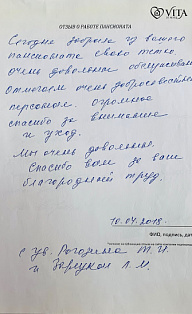 VITA
ОТЗЫВ О РАБОТЕ ПАНСИОНАТА
Сегодня забрали из вашего
пансионата свою тетю.
очень довольны обслуживанием
Отмечаем очень доброжелательный
персонал. Огромное
спасибо за внимание
и уход.
Мы очень довольны.
Спасибо вам за ваш
благородный труд.
10.04.2018.
ФИО, подпись, дата
С ув. Рогозина М. И.
и Л. М.